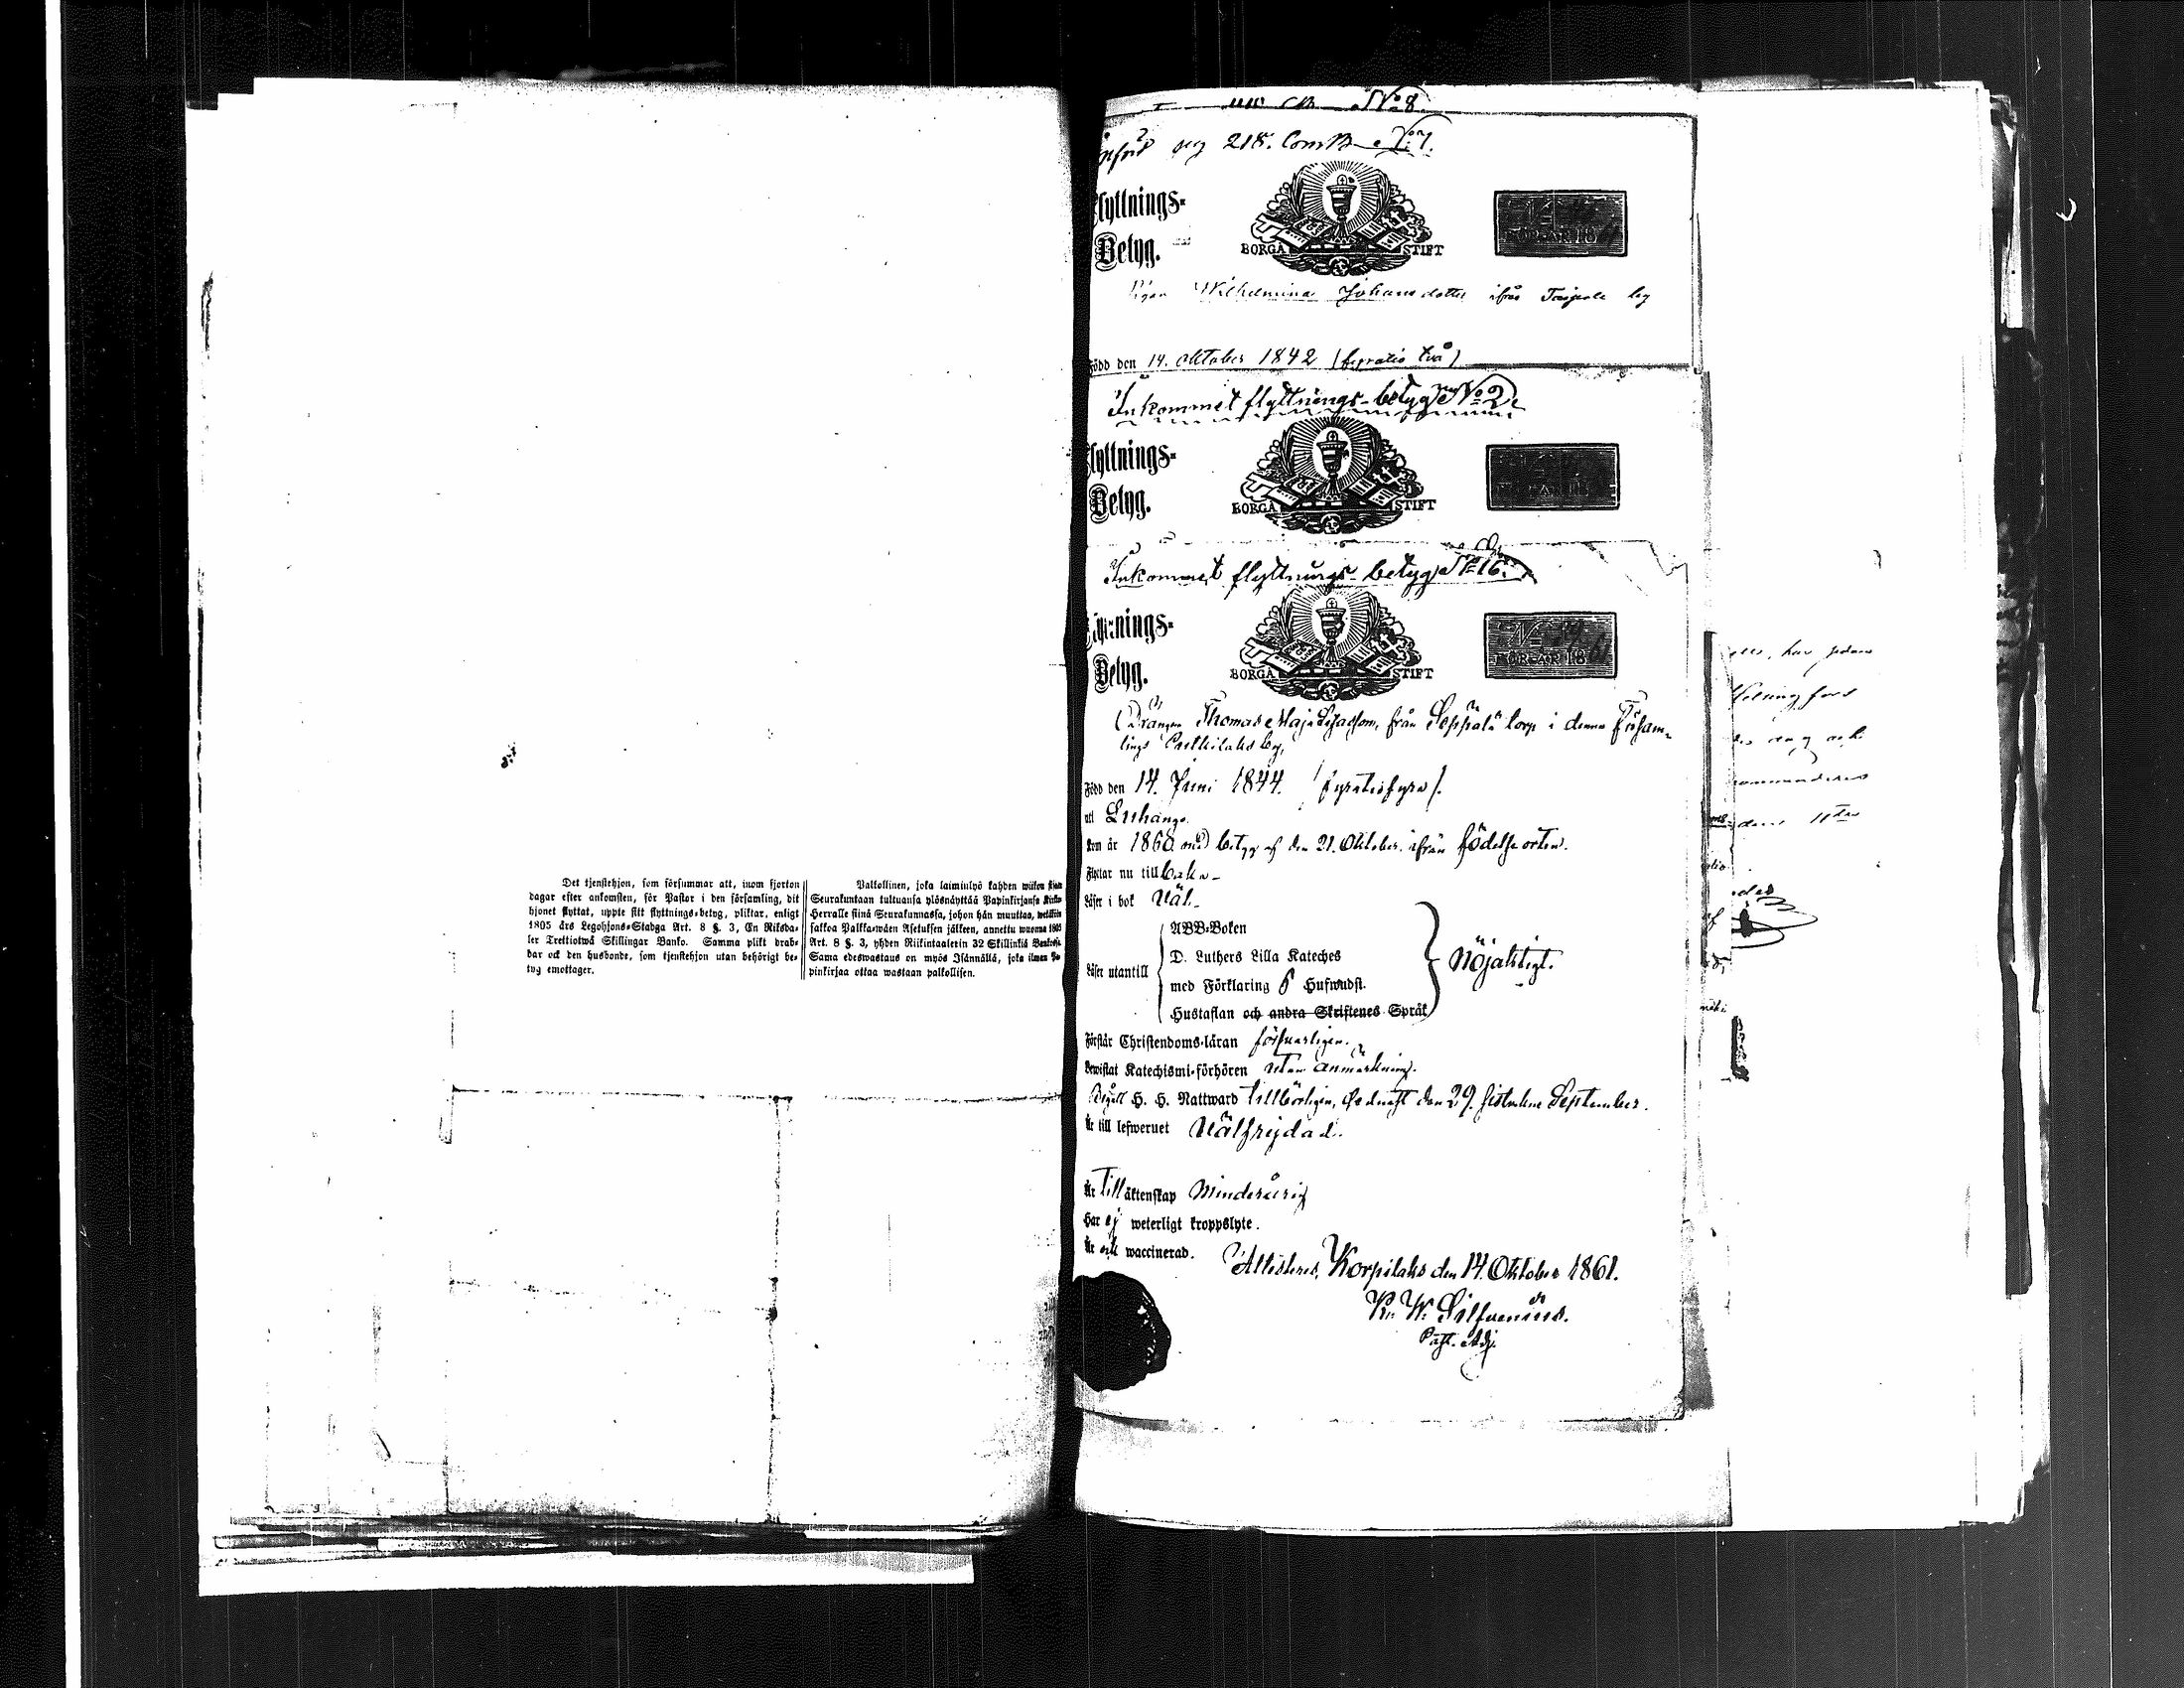 Det tjenstehjon, som försummar att, inom fjorton
dagar efter ankomsten, för Pastor i den församling, dit
hjonet flyttat, uppte sitt flyttnings-betyg, pliktar, enligt
1805 års Legohjons-Stadga Art. 8 §. 3, En Riksda-
ler Trettiotwå Skillingar Banko. Samma plikt drab-
bar ock den husbonde, som tjenstehjon utan behörigt be-
tyg emottager.
Palkollinen, joka laiminlyö kahden wiikon
Seurakuntaan tultuansa ylösnäyttää Papinkirjansa Kirko
Herralle siinä Seurakunnassa, johon hän muuttaa, wetäköön
sakkoa Palkka-wäen Asetuksen jälkeen, annettu wuonna 1805
Art. 8 §. 3, yhden Riikintaalerin 32 Skillinkiä Bankossa.
Sama edeswastaus on myös Isännällä, joka ilman Pa-
pinkirjaa ottaa wastaan palkollisen.
N:o 8.
pag 218. ComB N:o 7.
Flyttnings-
Betyg.
BORGÅ STIFT
FÖR ÅR 1861
Pigan Wilhelmina Johansdotter ifrån by
Född den 14. Oktober 1842 (fyratio två)
Inkommet flyttnings-betyg N:o 2.
Flyttnings-
Betyg.
BORGÅ STIFT
Inkommet flyttnings-betyg N:o 16.
Flyttnings-
Betyg.
BORGÅ STIFT
N:o
FÖR ÅR 1861
Drängen Thomas Maja Lisasson, från Seppälä torp i denna Församlings
by,
Född den 14. Juni 1844. (fyratiofyra).
uti Luhango.
Kom år 1860 med betyg af den 21. Oktober ifrån födelse orten.
Flyttar nu tillbaka
Läser i bok Väl.
Läser utantill
ABB-Boken
D. Luthers Lilla Kateches
med Förklaring 6 Hufwudst.
Hustaflan och andra Skriftenes Språk
Nöjaktigt.
Förstår Christendoms-läran försvarligen.
Bewistat Katechismi-förhören utan anmärkning.
Begått H. H. Nattward tillbörligen, sednast den 29. sistledne September.
Är till lefwernet Välfrejdad.
Är till äktenskap Minderårig
Har ej weterligt kroppslyte.
Är ock waccinerad.
Attesteras, Korpilaks den 14. Oktober 1861.
K. W. Silfvenius.
Past. Adj.
har sedan
Helsingfors